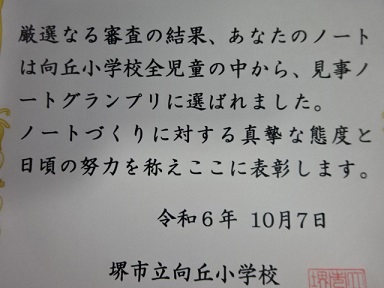 厳選なる審査の結果、あなたのノート
は向丘小学校全児童の中から、見事ノ
ートグランプリに選ばれました。
ノートづくりに対する真摯な態度と
日頃の努力を称えここに表彰します。
令和６年 10月7日
堺市立向丘小学校